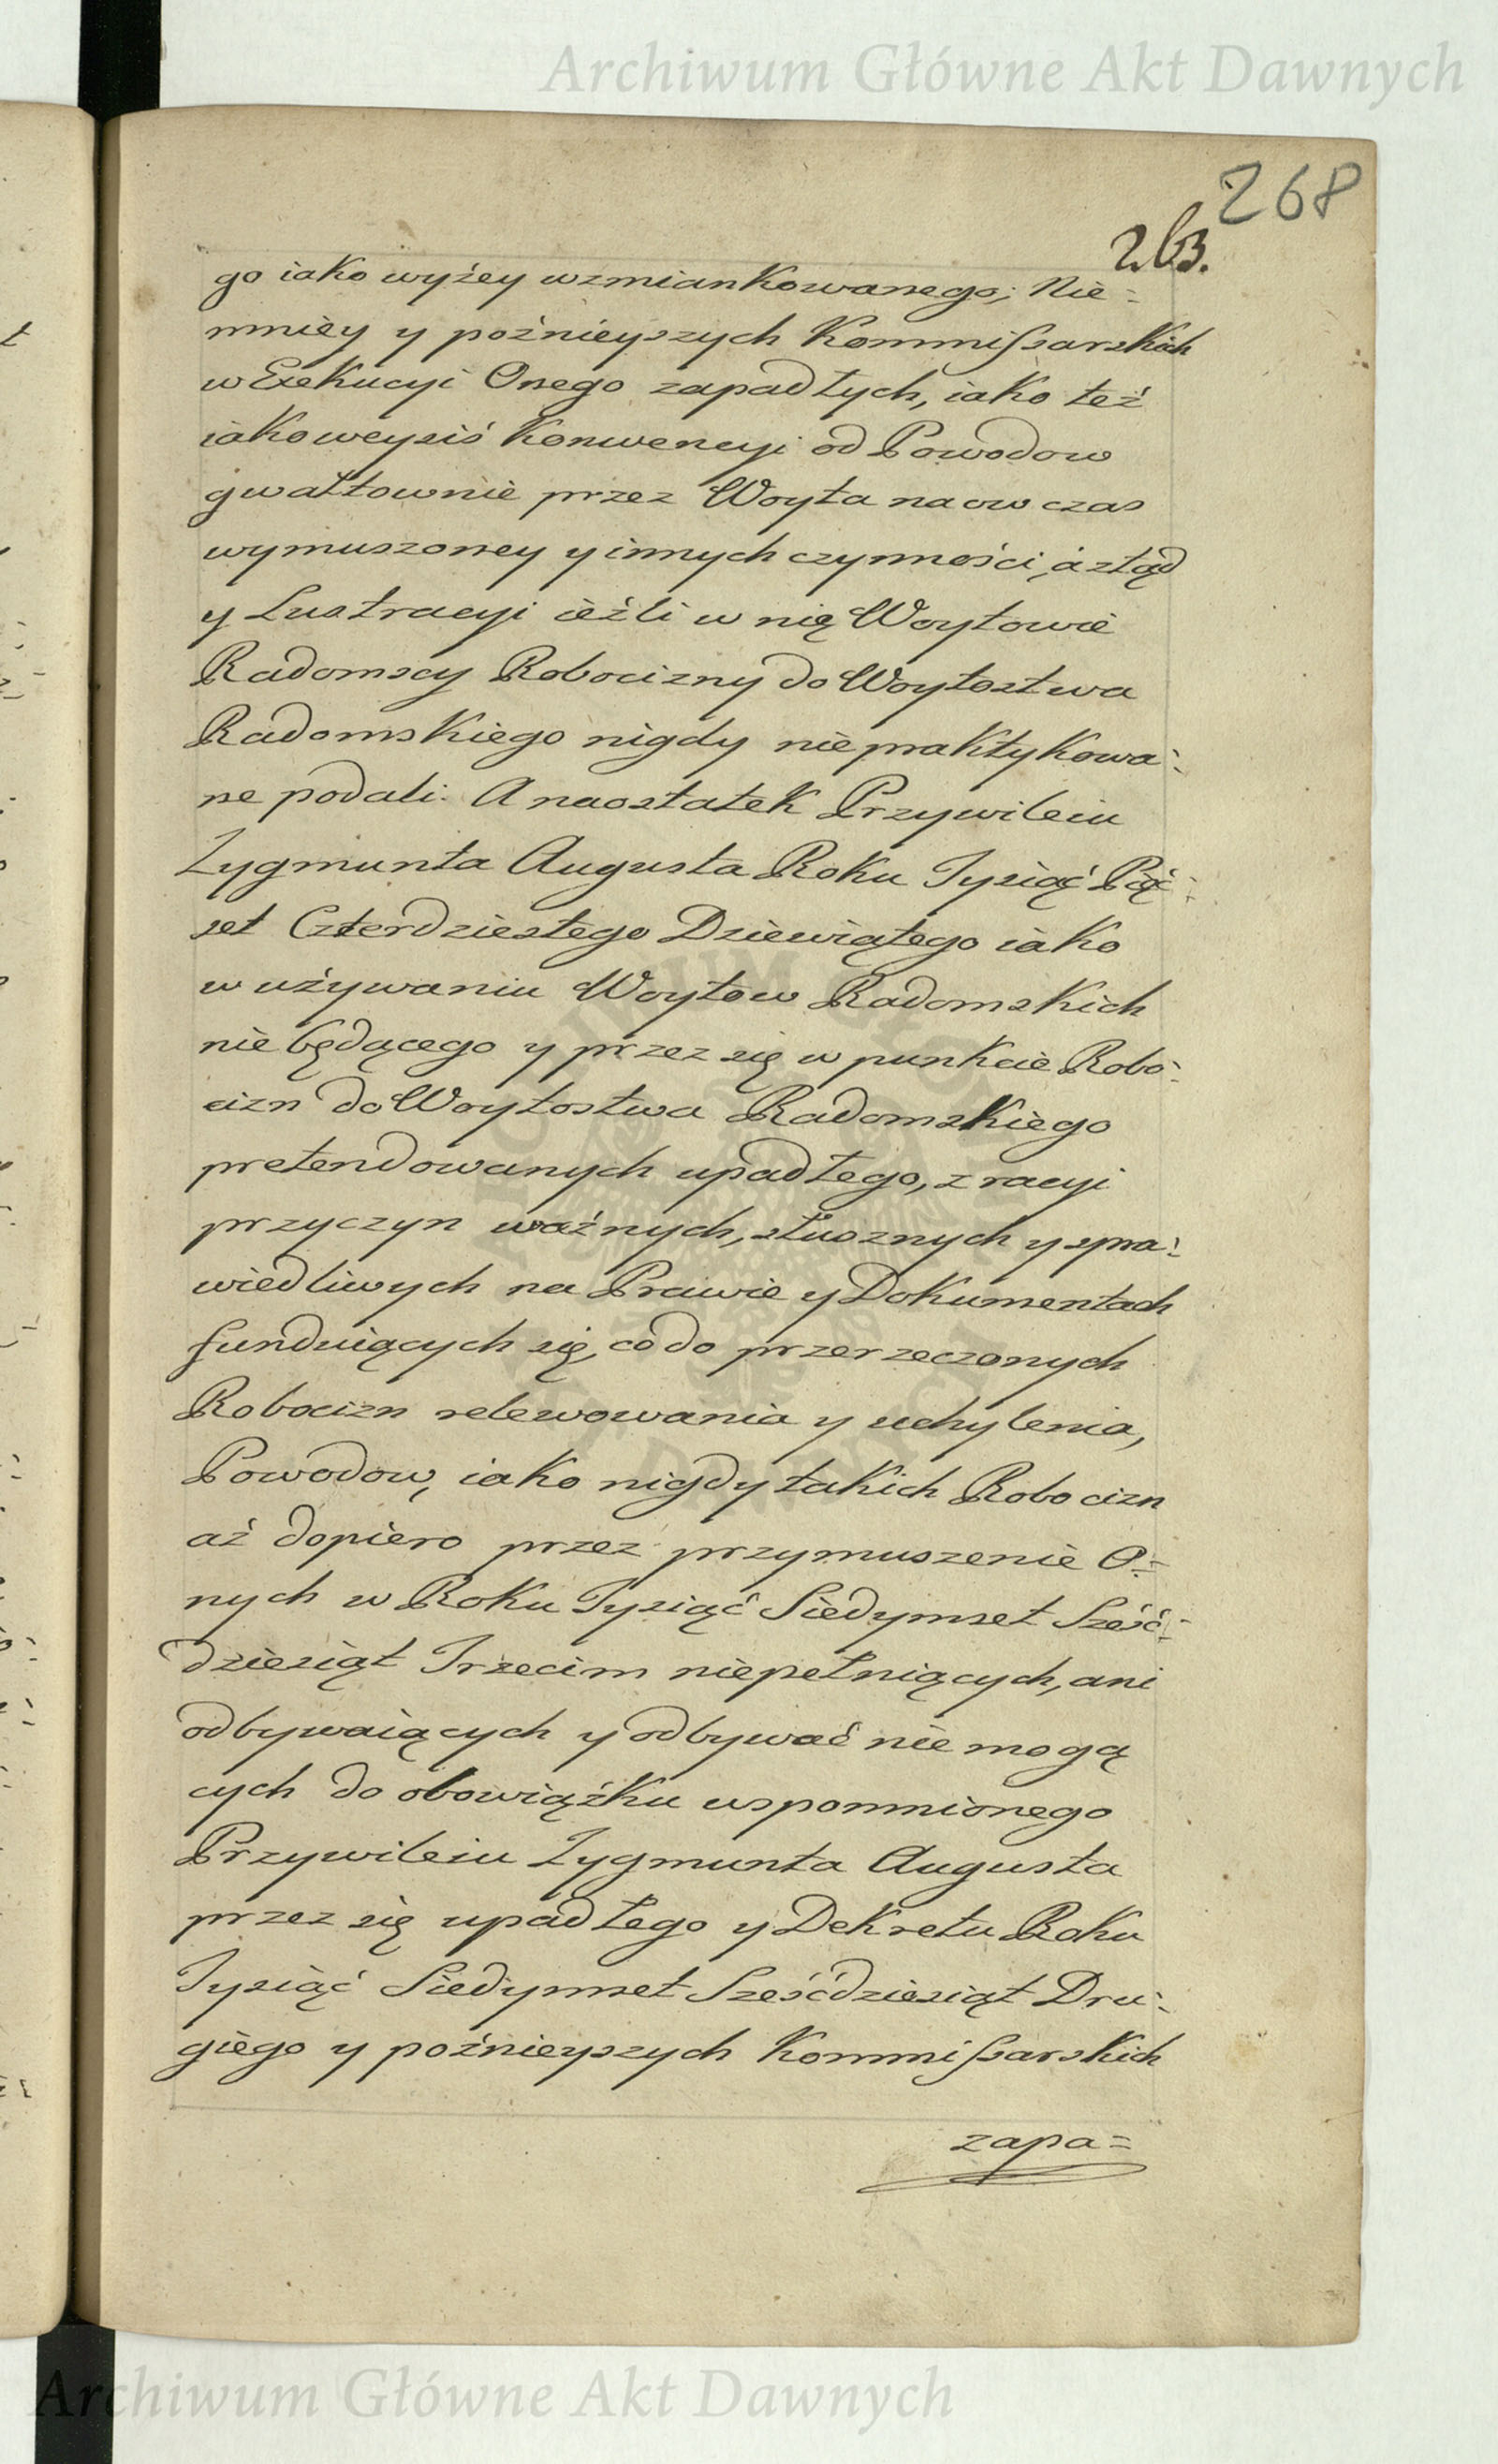 Archiwum Główne Akt Dawnych
268
263.
go iako wyżey wzmiankowanego; Nie=
mniey y poźnieyszych Kommißarskich
w Exekucyi Onego zapadłych, iako też
iakoweysiś Konwencyi od Powodow
gwałtownie przez Woyta naowczas
wymuszoney y innych czynności, a ztąd
y Lustracyi ieźli w nię Woytowie
Radomscy Robocizny do Woytostwa
Radomskiego nigdy niepraktykowa=
ne podali. A naostatek Przywileiu
Zygmunta Augusta Roku Tysiąć Pięć=
set Czterdziestego Dziewiątego iako
w używaniu Woytow Radomskich
nie będącego y przez się w punkcie Robo=
cizn do Woytostwa Radomskiego
pretendowanych upadłego, z racyi
przyczyn ważnych, słusznych y spra=
wiedliwych na Prawie y Dokumentach
funduiących się, co do przerzeczonych
Robocizn relewowania y uchylenia,
Powodow, iako nigdy takich Robocizn
aż dopiero przez przymuszenie O=
nych w Roku Tysiąć Siedymset Sześć=
dziesiąt Trzecim niepełniących, ani
odbywaiących y odbywać nie mogą
cych do obowiąźku wspomnionego
Przywileiu Zygmunta Augusta
przez się upadłego y Dekretu Roku
Tysiąć Siedymset Sześćdziesiąt Dru=
giego y poźnieyszych Kommißarskich
zapa=
Archiwum Główne Akt Dawnych